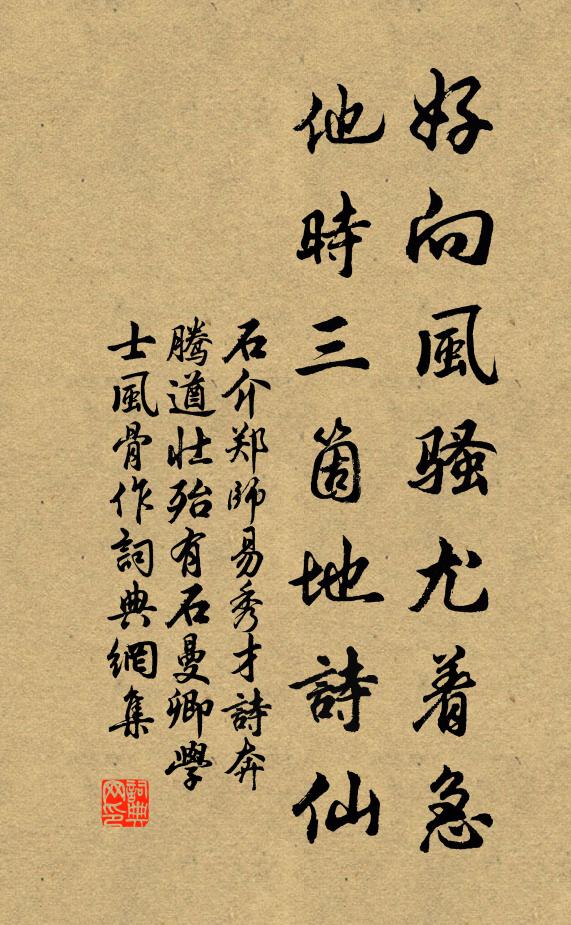 好向風騷尤着急
他時三箇地詩仙
石介郑師易秀才詩奔
騰遒壯殆有石曼卿學
士風骨作詞典網集
詞典网印